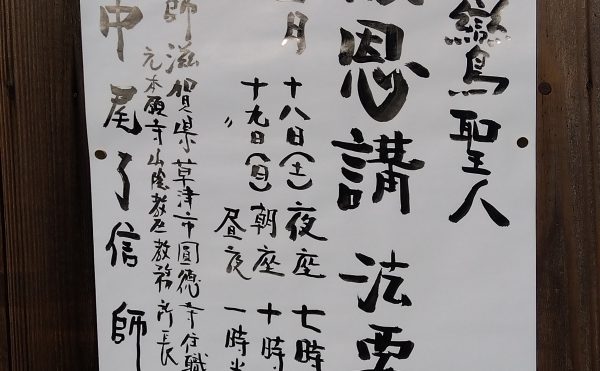 鸞聖人
恩講 法要
月 十八日(土)夜座 七時
十九日(日)朝座 十時
〃 昼夜 一時半
師 滋賀県草津市圓徳寺住職
元本願寺山陰教区教務所長
中尾了信師